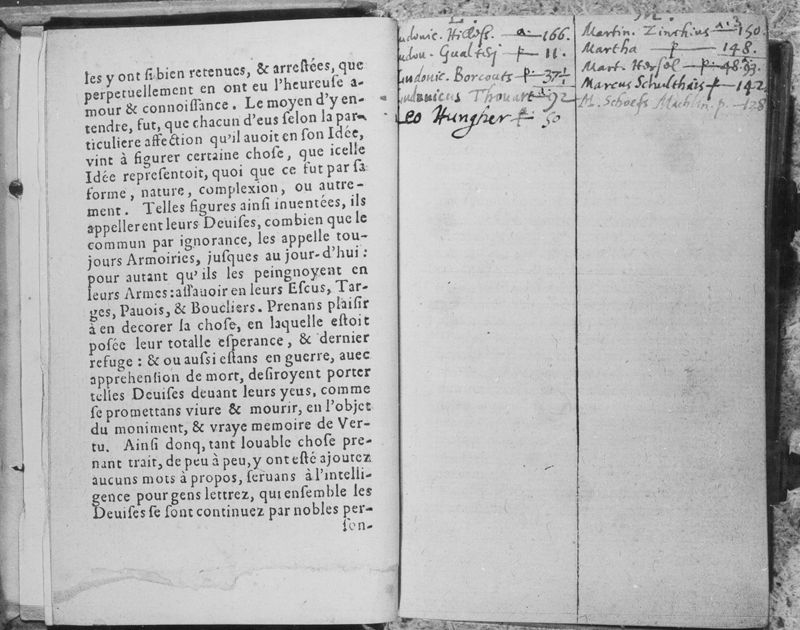 les y ont ſi bien retenues, & arreſtées, que
perpetuellement en ont eu l'heureuſe a-
mour & connoiſſance. Le moyen d'y en-
tendre, fut, que chacun d'eus ſelon la par-
ticuliere affection qu'il auoit en ſon Idée,
vint à figurer certaine choſe, que icelle
Idée repreſentoit, quoi que ce fut par ſa
forme, nature, complexion, ou autre-
ment. Telles figures ainſi inuentées, ils
appellerent leurs Deuiſes, combien que le
commun par ignorance, les appelle tou-
jours Armoiries, juſques au jour-d'hui:
pour autant qu'ils les peingnoyent en
leurs Armes: aſſauoir en leurs Eſcus, Tar-
ges, Pauois, & Boucliers. Prenans plaiſir
à en decorer la choſe, en laquelle eſtoit
poſée leur totalle eſperance, & dernier
refuge: & ou auſsi eſtans en guerre, auec
apprehenſion de mort, deſiroyent porter
telles Deuiſes deuant leurs yeus, comme
ſe promettans viure & mourir, en l'objet
du moniment, & vraye memoire de Ver-
tu. Ainſi donq, tant louable choſe pre-
nant trait, de peu à peu, y ont eſté ajoutez
aucuns mots à propos, ſeruans à l'intelli-
gence pour gens lettrez, qui enſemble les
Deuiſes ſe ſont continuez par nobles per-
ſon-
L.
166.
p 11.
Borcouts p. 37
Thouart 92
Leo Hungher p. 50
M.
Martin. 150.
Martha p 148.
Mart. p. 48. 93.
Marcus Schulthais p 142
M. p. 128